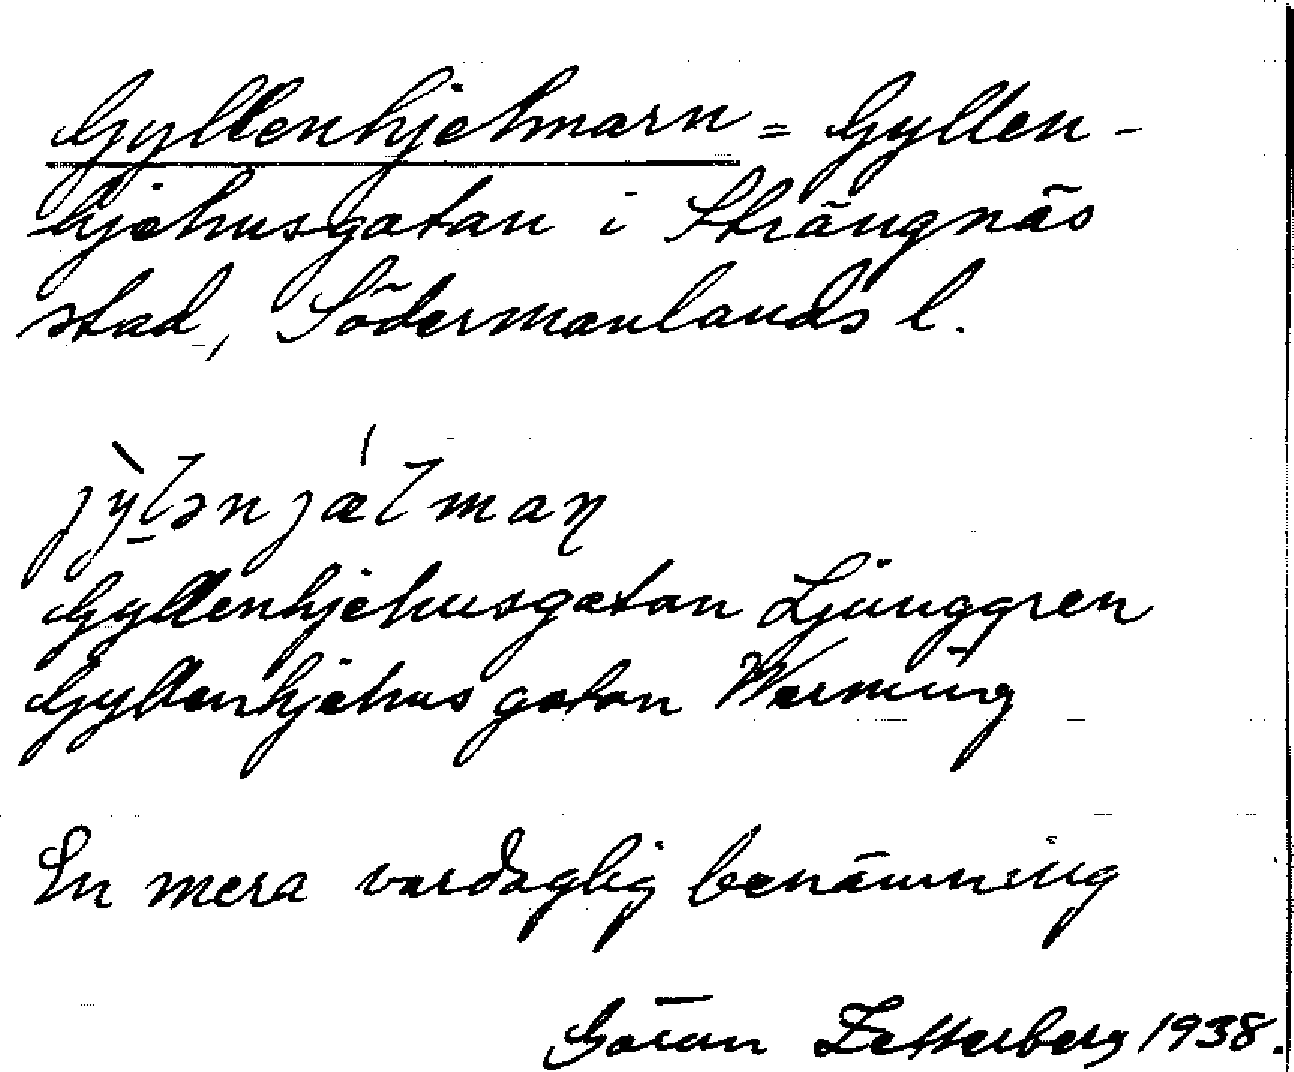 Gyllenhjelmarn = Gyllen-
hjelmsgatan i Strängnäs
stad, Södermanlands l.
Gyllenhjelmsgatan Ljunggren
Gyllenhjelmsgatan Warming
En mera vardaglig benämning
Göran Zetterberg 1938.